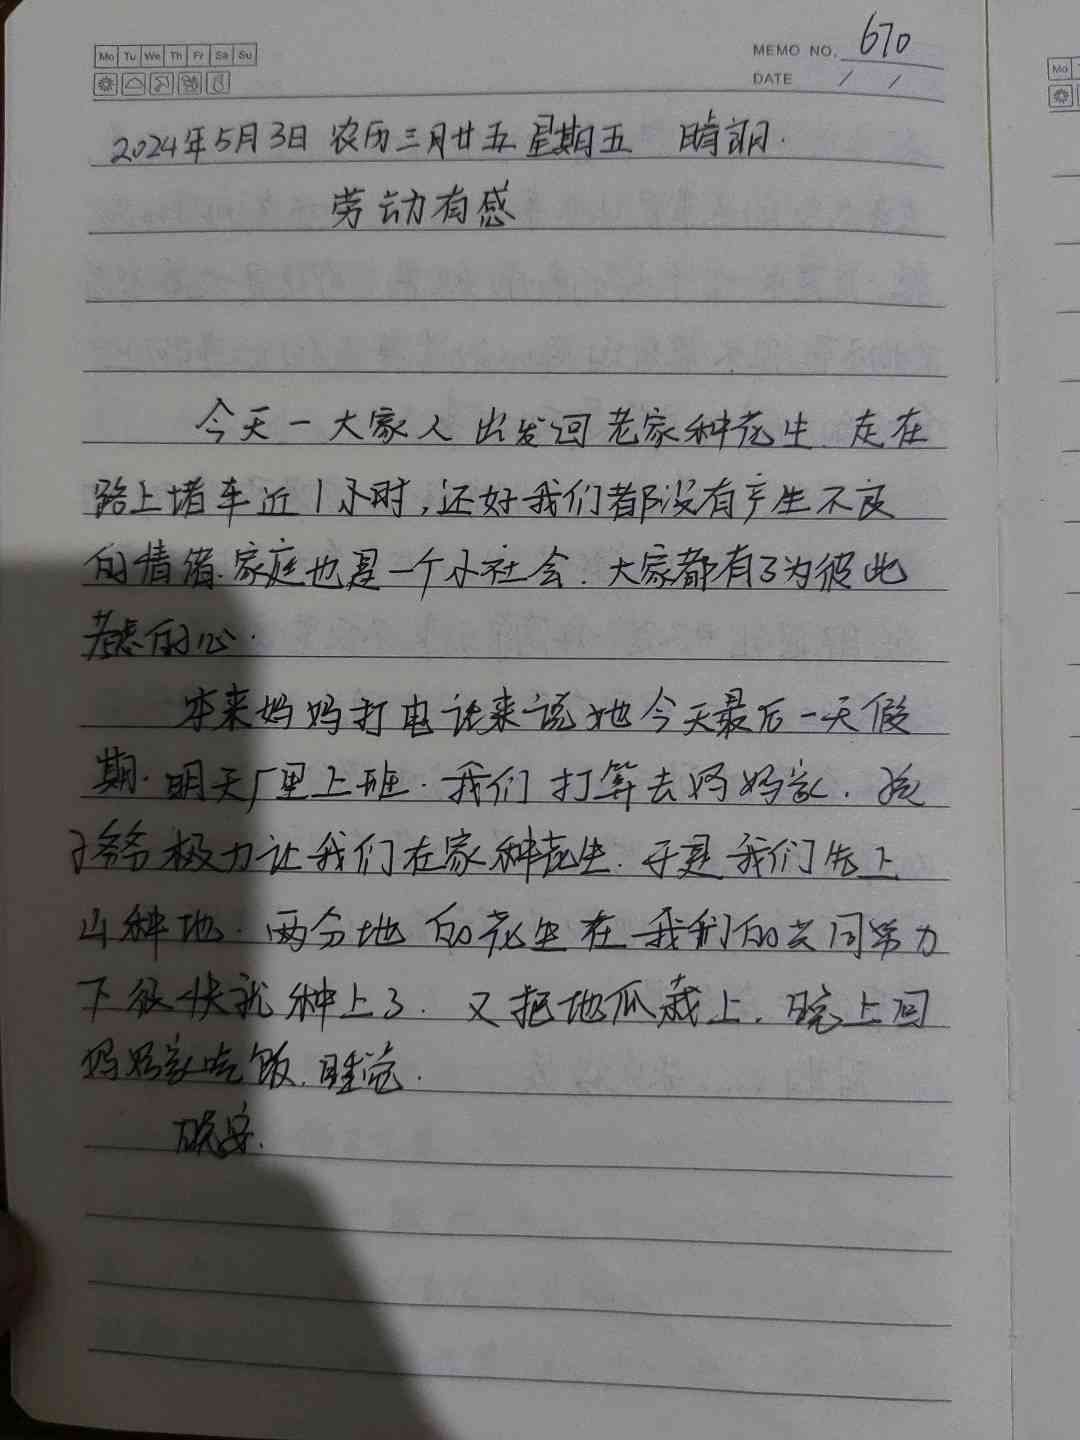 Mo Tu We Th Fr Sa Su
MEMO NO. 670
DATE / /
Mo
2024年5月3日 农历三月廿五 星期五 晴朗.
劳动有感
今天一大家人出发回老家种花生.走在
路上堵车近1小时,还好我们都没有产生不良
的情绪.家庭也是一个小社会.大家都有了为彼此
考虑的心.
本来妈妈打电话来说她今天最后一天假
期.明天厂里上班.我们打算去妈妈家.孩
子爷爷极力让我们在家种花生.于是我们先上
山种地.两分地的花生在我们的共同努力
下很快就种上了.又把地瓜栽上.晚上回
妈妈家吃饭.睡觉.
晚安.